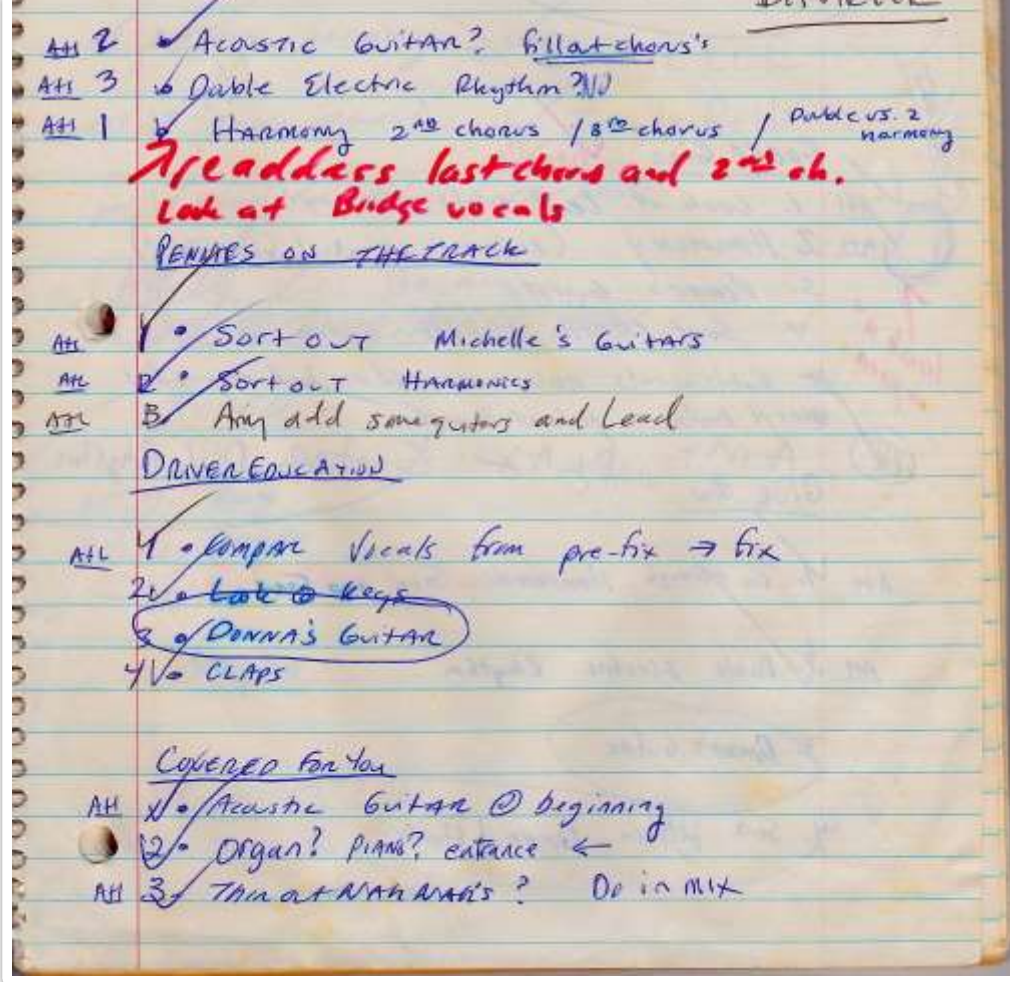 2 • Acoustic Guitar? fill at chorus's
3 • Double Electric Rhythm? NO
1 • HARMONY 2ND chorus / 3RD chorus / Double vs. 2 harmony
Readdress last chorus and 2nd ch.
Look at Bridge vocals
PENNIES ON THE TRACK
1 • Sort OUT Michelle's Guitars
2 • Sort OUT HARMONICS
3 • Amy add some guitars and Lead
DRIVER EDUCATION
1 • Compar Vocals from pre-fix → fix
2 • Look @ Keys
3 • DONNA'S GuitAR
4 • CLAPS
COVERED For You
AH 1 • Acoustic Guitar @ beginning
2 • Organ? PIANO? entrance ←
AH 3 • Thin out NAH NAH'S? Do in MIX